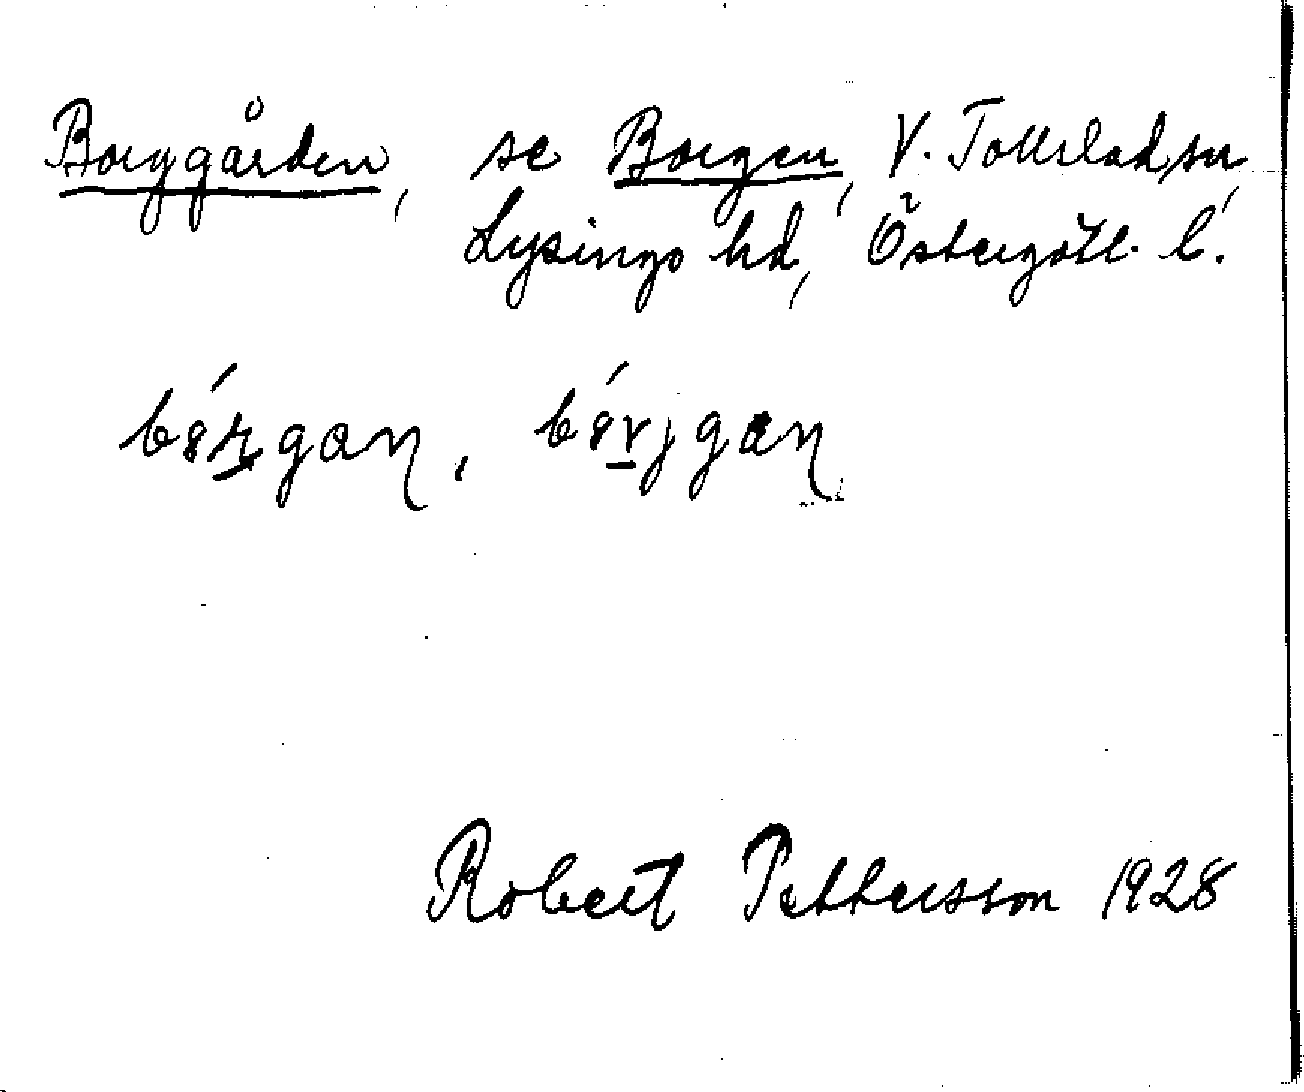 Borggården, se Borgen, V. Tollstad sn,
Lysings hd, Östergötl. l.
Robert Pettersson 1928